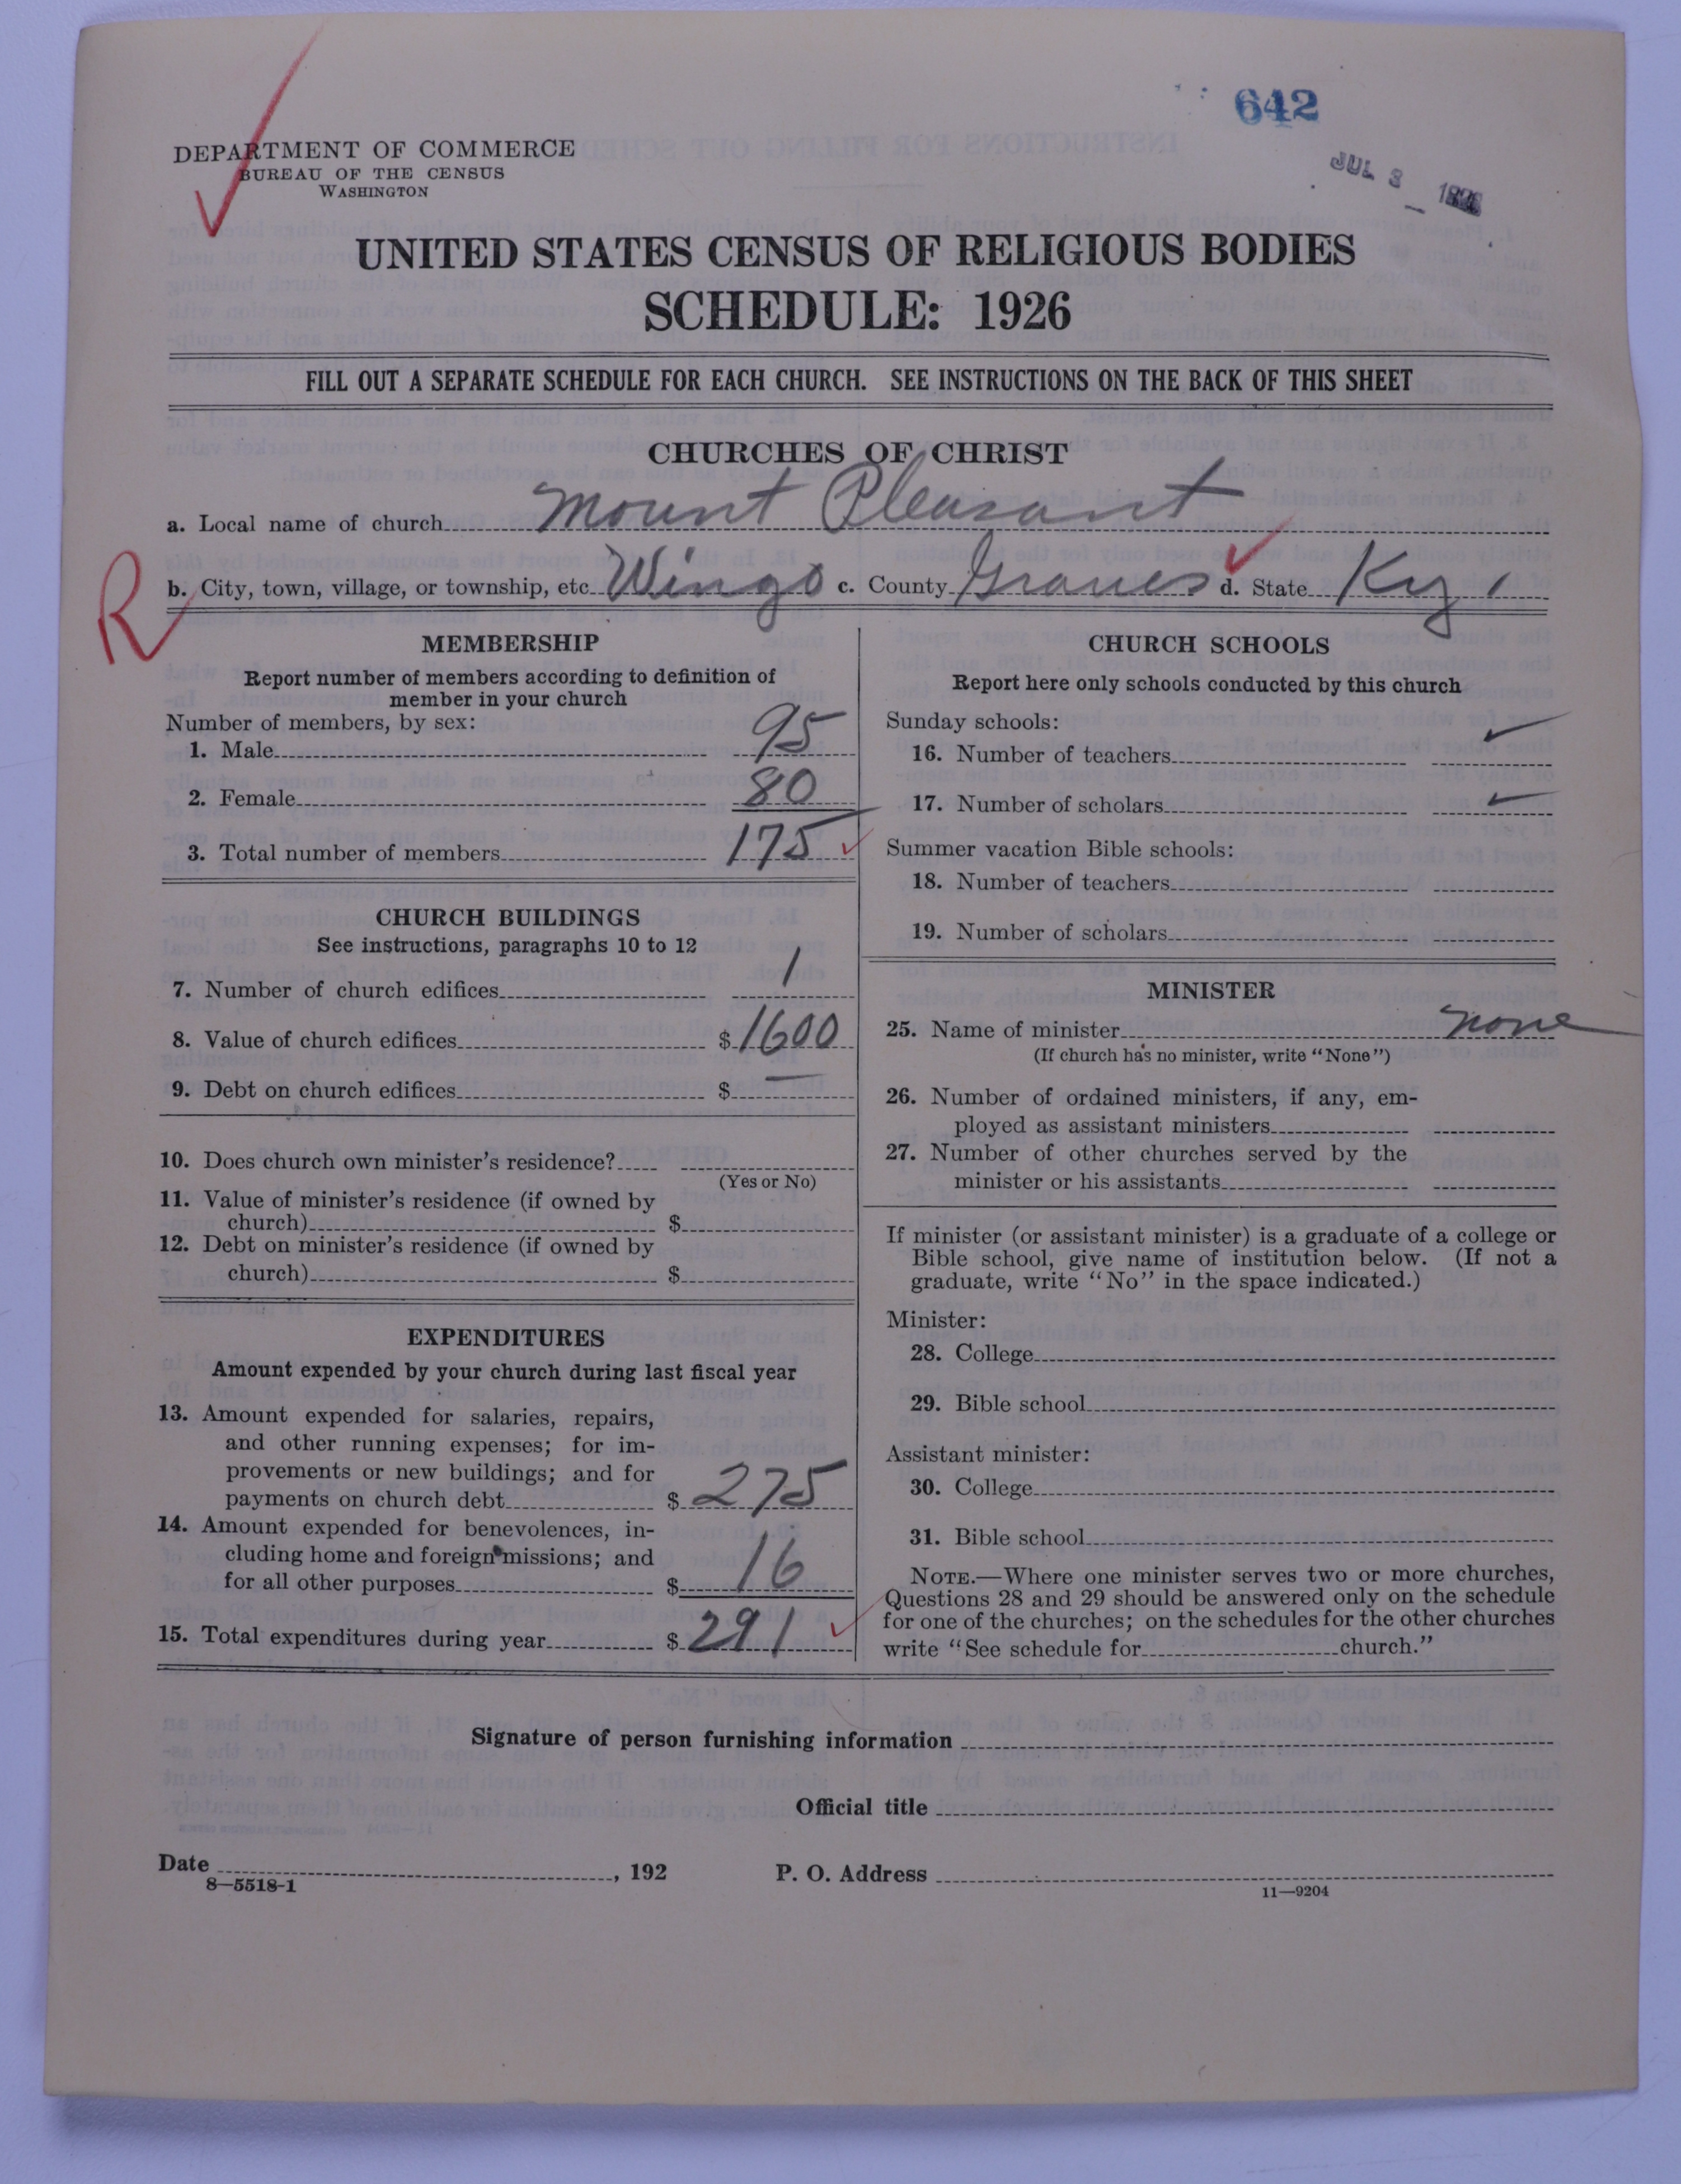 642
JUL 3
DEPARTMENT OF COMMERCE
BUREAU OF THE CENSUS
WASHINGTON
UNITED STATES CENSUS OF RELIGIOUS BODIES
SCHEDULE: 1926
FILL OUT A SEPARATE SCHEDULE FOR EACH CHURCH. SEE INSTRUCTIONS ON THE BACK OF THIS SHEET
CHURCHES OF CHRIST
a. Local name of church Mount Pleasant
R b. City, town, village, or township, etc Wingo c. County Graves d. State Ky.
MEMBERSHIP
Report number of members according to definition of
member in your church
Number of members, by sex:
1. Male 95
2. Female 80
3. Total number of members 175
CHURCH BUILDINGS
See instructions, paragraphs 10 to 12
7. Number of church edifices 1
8. Value of church edifices $ 1600
9. Debt on church edifices $ —
10. Does church own minister's residence?
(Yes or No)
11. Value of minister's residence (if owned by
church) $
12. Debt on minister's residence (if owned by
church) $
EXPENDITURES
Amount expended by your church during last fiscal year
13. Amount expended for salaries, repairs,
and other running expenses; for im-
provements or new buildings; and for
payments on church debt $ 275
14. Amount expended for benevolences, in-
cluding home and foreign missions; and
for all other purposes $ 16
15. Total expenditures during year $ 291
CHURCH SCHOOLS
Report here only schools conducted by this church
Sunday schools:
16. Number of teachers
17. Number of scholars
Summer vacation Bible schools:
18. Number of teachers
19. Number of scholars
MINISTER
25. Name of minister none
(If church has no minister, write "None")
26. Number of ordained ministers, if any, em-
ployed as assistant ministers
27. Number of other churches served by the
minister or his assistants
If minister (or assistant minister) is a graduate of a college or
Bible school, give name of institution below. (If not a
graduate, write "No" in the space indicated.)
Minister:
28. College
29. Bible school
Assistant minister:
30. College
31. Bible school
NOTE.—Where one minister serves two or more churches,
Questions 28 and 29 should be answered only on the schedule
for one of the churches; on the schedules for the other churches
write "See schedule for church."
Signature of person furnishing information
Official title
Date , 192 P. O. Address
8—5518-1
11—9204